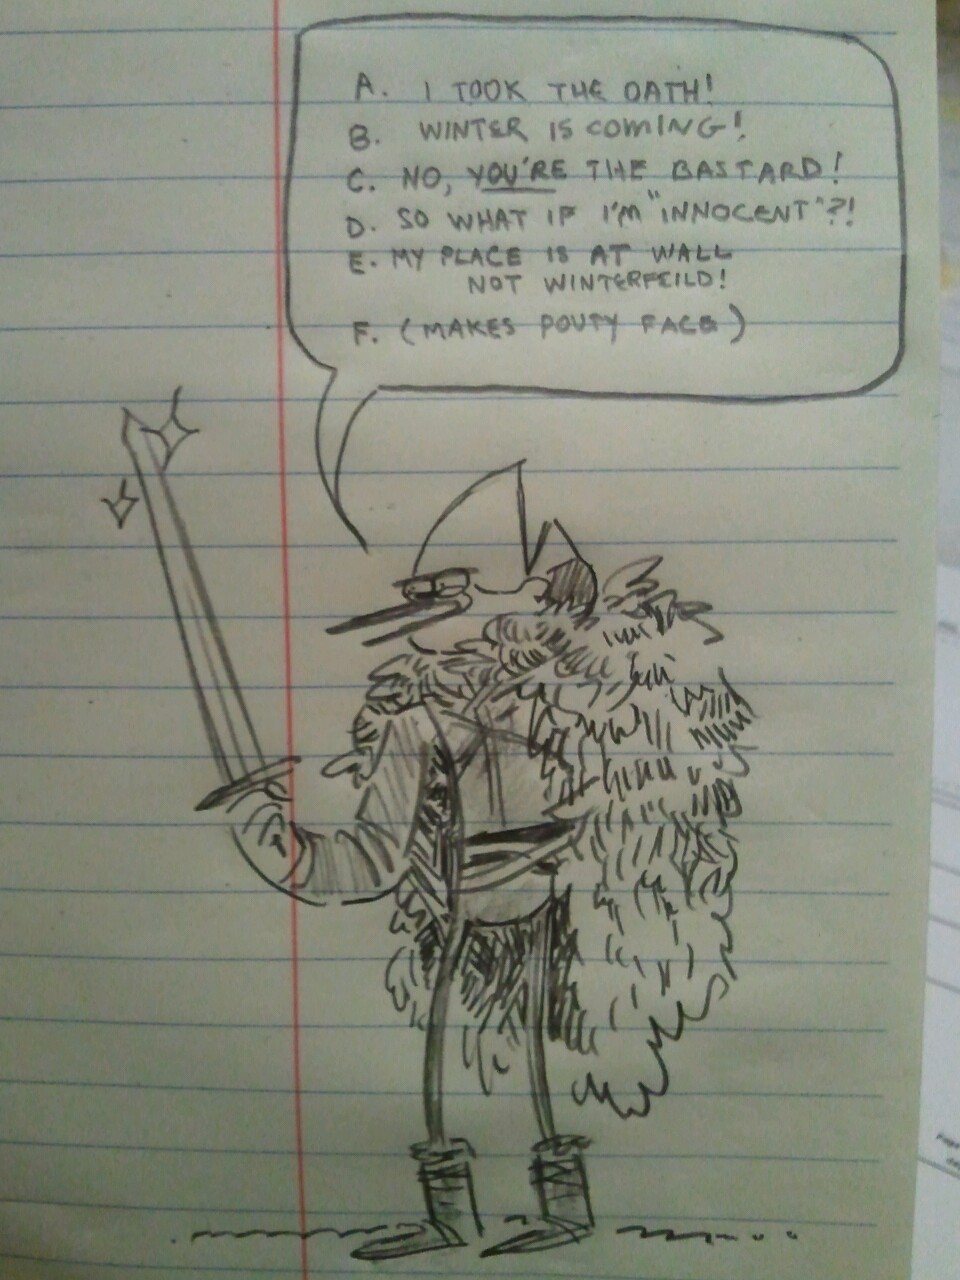 A. I TOOK THE OATH!
B. WINTER IS COMING!
C. NO, YOU'RE THE BASTARD!
D. SO WHAT IF I'M "INNOCENT"?!
E. MY PLACE IS AT WALL
NOT WINTERFEILD!
F. (MAKES POUTY FACE)